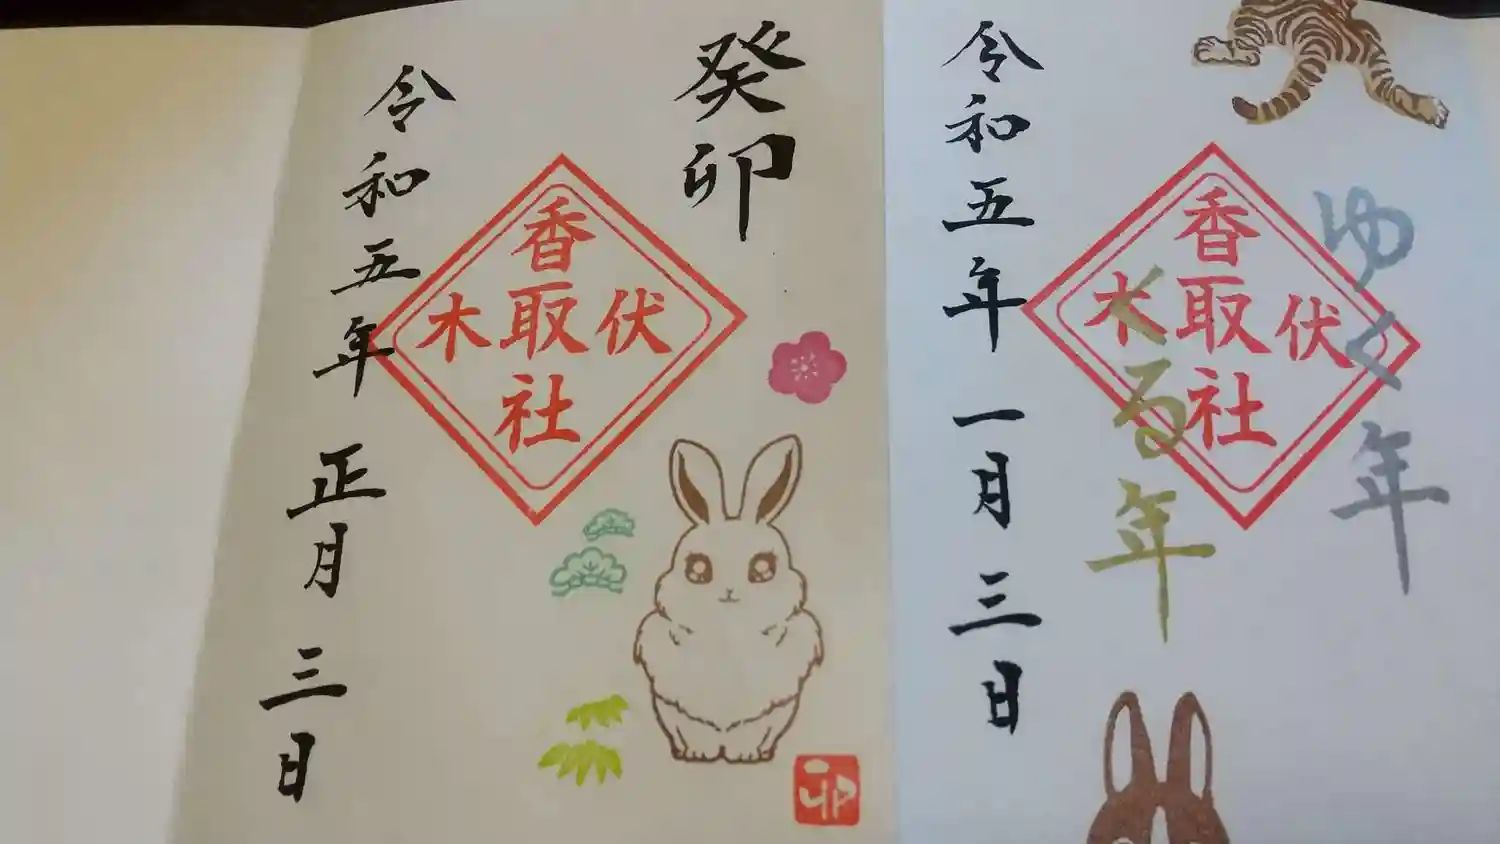 ゆく年
くる年
伏木
香取社
令和五年 一月 三日
癸卯
伏木
香取社
令和五年 正月 三日
卯